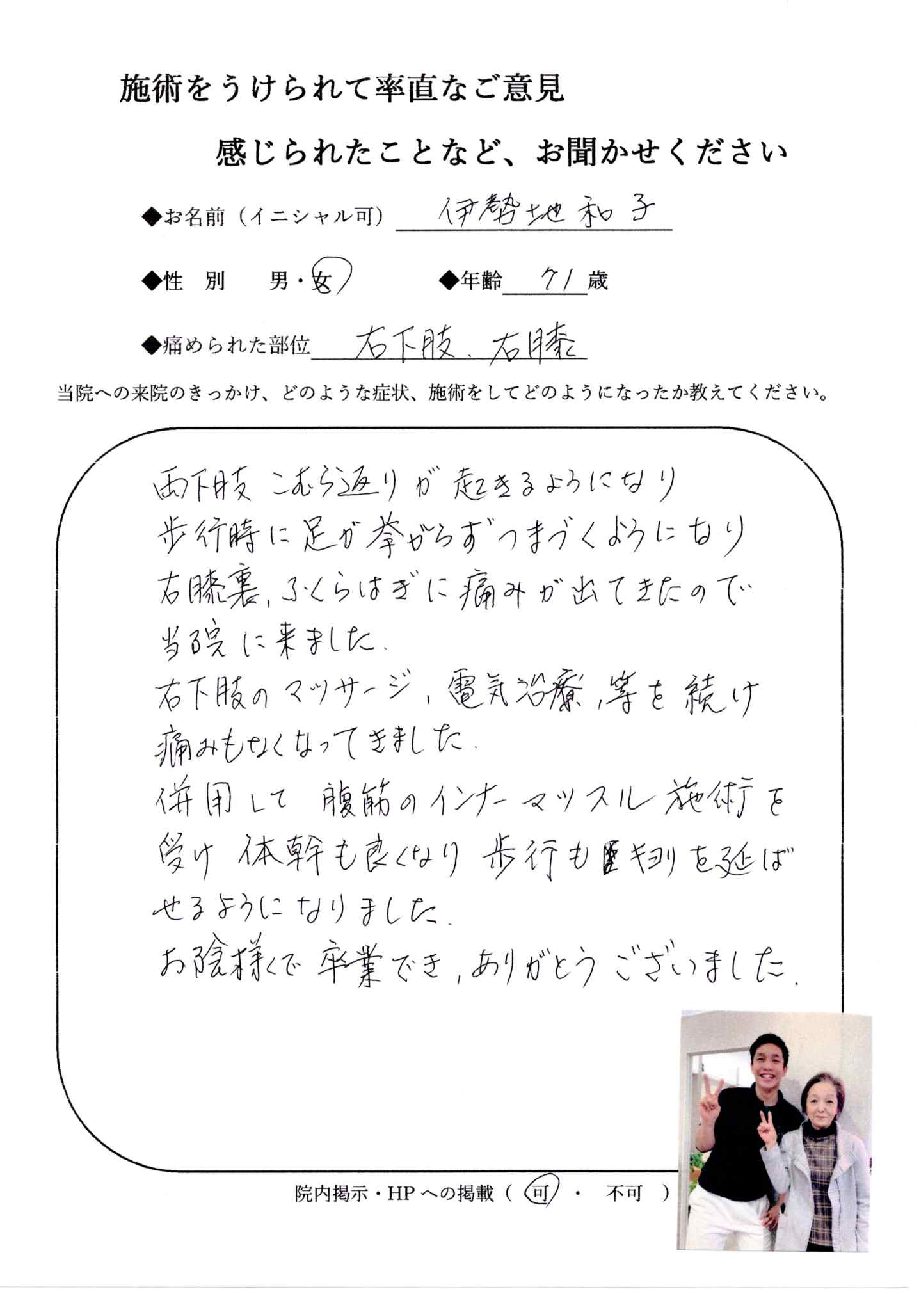 施術をうけられて率直なご意見
感じられたことなど、お聞かせください
◆お名前（イニシャル可） 伊勢地和子
◆性 別 男・女 ◆年齢 71 歳
◆痛められた部位 右下肢、右膝
当院への来院のきっかけ、どのような症状、施術をしてどのようになったか教えてください。
両下肢 こむら返りが 起きるようになり
歩行時に 足が挙がらず つまづくようになり
右膝裏、ふくらはぎに 痛みが出てきたので
当院に来ました.
右下肢のマッサージ、電気治療、等を 続け
痛みもなくなってきました.
併用して 腹筋のインナーマッスル 施術を
受け 体幹も良くなり 歩行も距離を延ば
せるようになりました.
お陰様で 卒業でき、ありがとうございました.
院内掲示・HPへの掲載（ 可 ・ 不可 ）